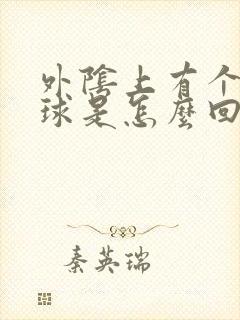 外陰上有个
球是怎麼回
秦英瑞